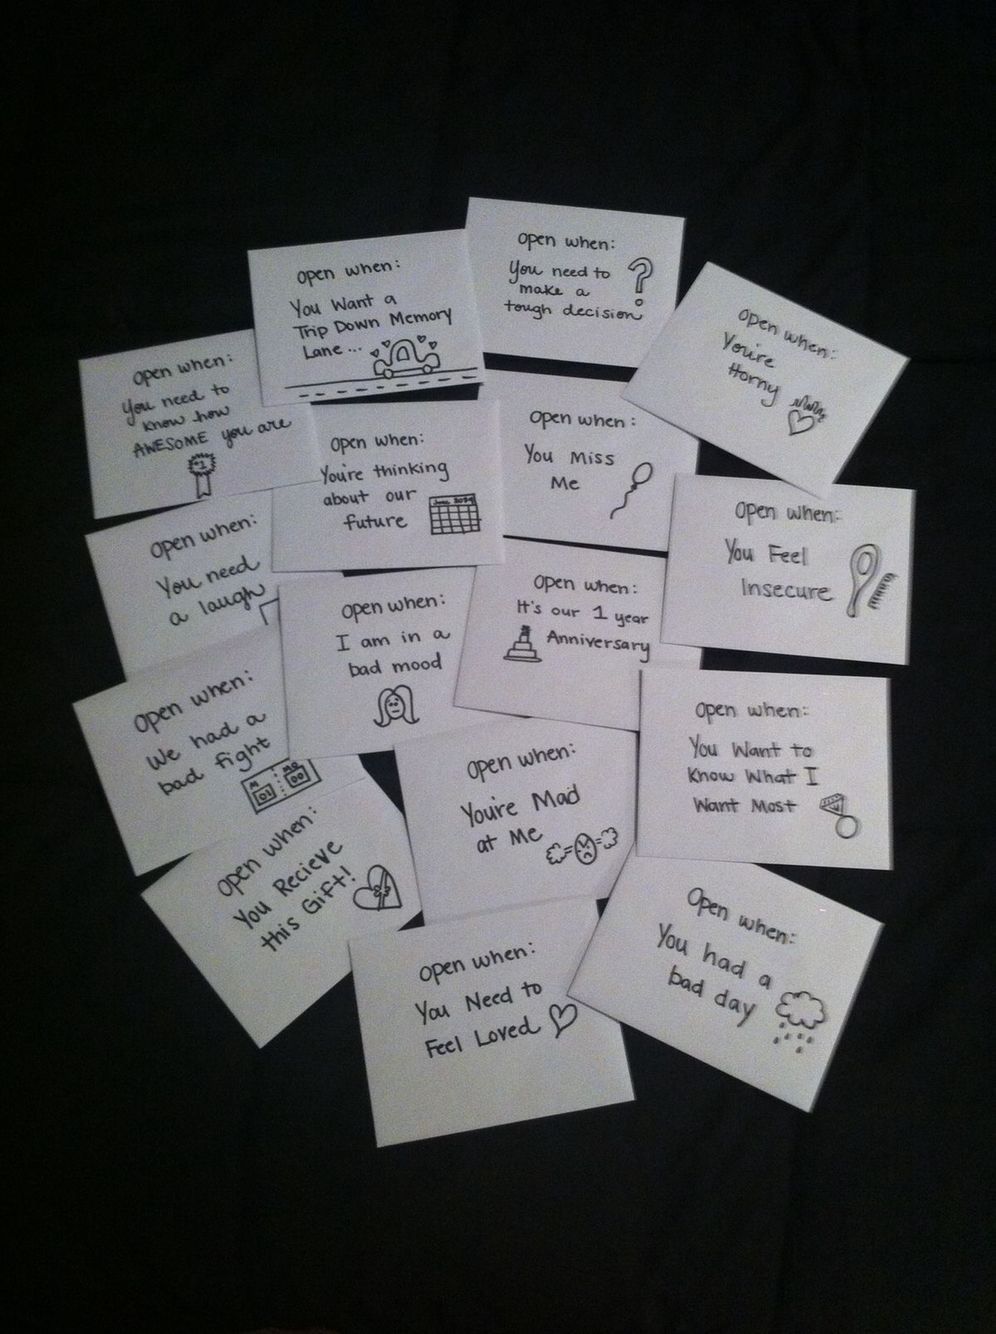 Open when:
You need to
make a
tough decision
?
Open when:
You Want a
Trip Down Memory
Lane...
Open when:
You're
Horny
Open when:
You need to
know how
AWESOME you are
#1
Open when:
You're thinking
about our
future
Open when:
You Miss
Me
Open when:
You Feel
Insecure
Open when:
You need
a laugh
Open when:
I am in a
bad mood
Open when:
It's our 1 year
Anniversary
Open when:
We had a
bad fight
Open when:
You're Mad
at Me
Open when:
You Want to
Know What I
Want Most
Open when:
You Recieve
this Gift!
Open when:
You Need to
Feel Loved
Open when:
You had a
bad day